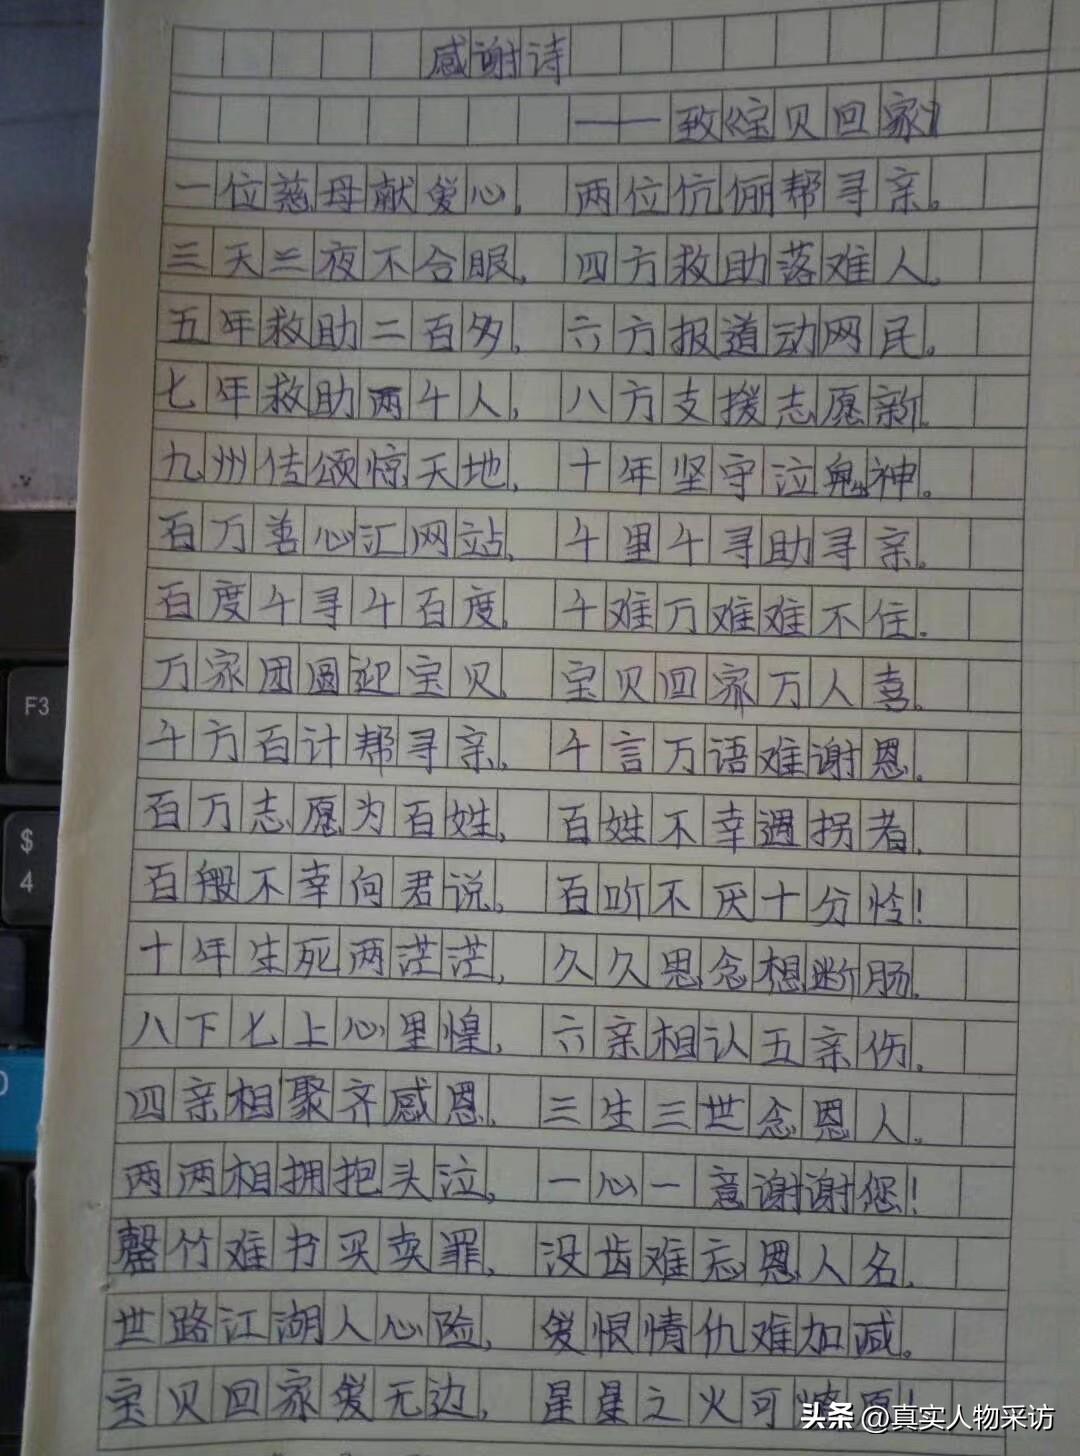 感谢诗
——致《宝贝回家》
一位慈母献爱心,两位伉俪帮寻亲。
三天三夜不合眼,四方救助落难人。
五年救助二百多,六方报道动网民。
七年救助两千人,八方支援志愿新。
九州传颂惊天地,十年坚守泣鬼神。
百万善心汇网站,千里千寻助寻亲。
百度千寻千百度,千难万难难不住。
万家团圆迎宝贝,宝贝回家万人喜。
千方百计帮寻亲,千言万语难谢恩。
百万志愿为百姓,百姓不幸遇拐者。
百般不幸向君说,百听不厌十分怜!
十年生死两茫茫,久久思念想断肠。
八下七上心里惶,六亲相认五亲伤。
四亲相聚齐感恩,三生三世念恩人。
两两相拥抱头泣,一心一意谢谢您!
罄竹难书买卖罪,没齿难忘恩人名。
世路江湖人心险,爱恨情仇难加减。
宝贝回家爱无边,星星之火可燎原!
头条 @真实人物采访
F3
$
4